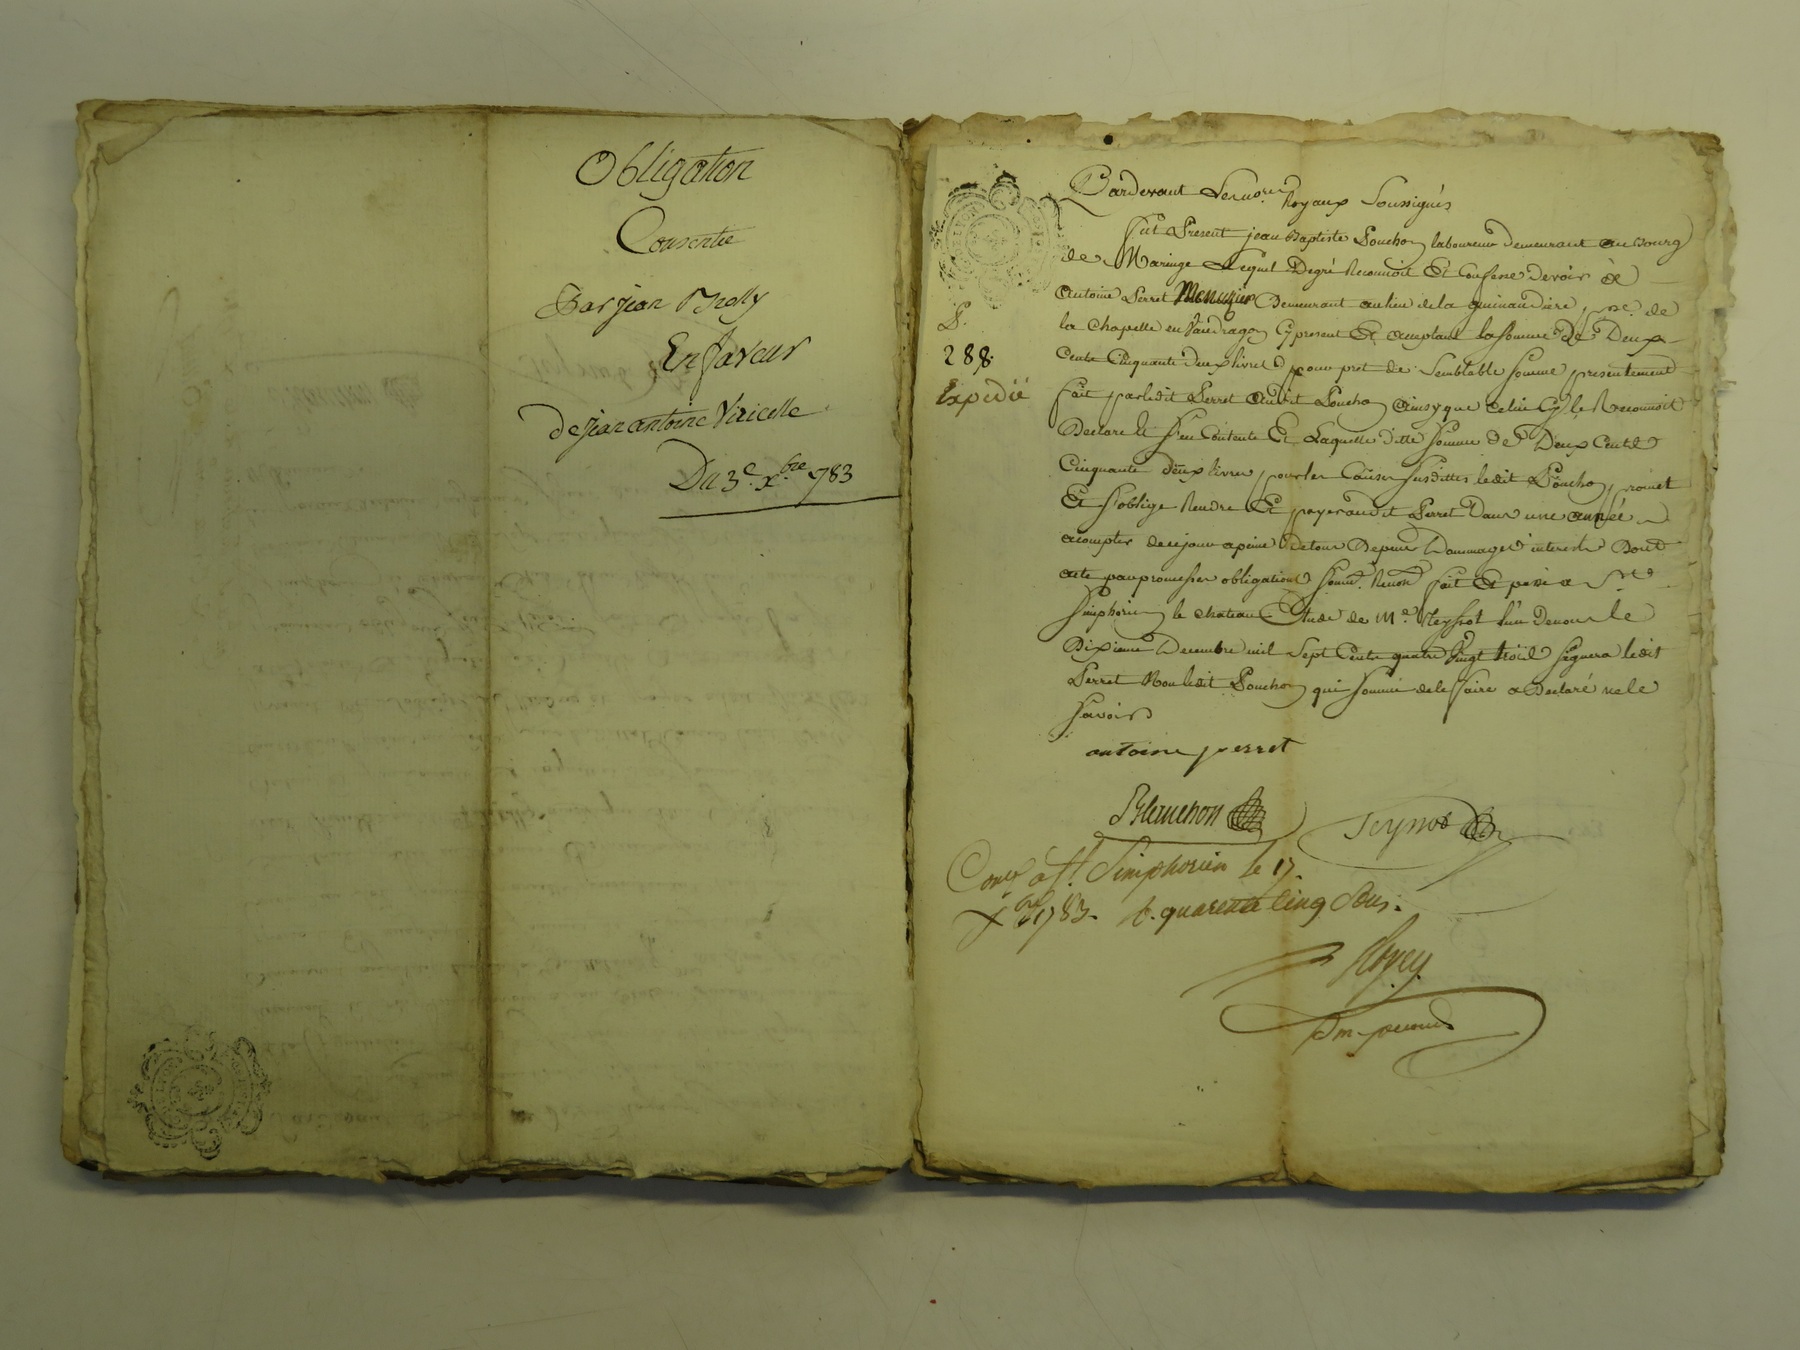 Obligation
Consentie
Par jean
En faveur
De jean antoine Viricelle
Du 3e xbre 783
Pardevant Les nores Royaux Soussignés
fut Present jean Baptiste Pouchon laboureur demeurant au Bourg
de Maringe Lequel Degré Reconnoit Et Confesse devoir à
antoine Perret Menuzier Demeurant au lieu de la guinandiere psse de
la Chapelle en Vaudragon Cy present Et acceptant la somme De Deux
Cents Cinquante deux livres pour pret de Semblable Somme presentement
fait par ledit Perret audit Pouchon ainsy que celui Cy le Reconnoit
Declare Et s'en Contente Et Laquelle ditte Somme de Deux Cents
Cinquante deux livres pour les Causes susdittes ledit Pouchon promet
Et s'oblige Rendre Et payer audit Perret Dans une année
a compter de ce jour a peine de tous Depens Dommages interests Dont
acte par promesses obligations soum. Renon fait Et passé a St
Simphorien le chateau Etude de Me Teyssot l'un De nous le
Dixieme Decembre mil Sept Cents quatre Vingt trois signera ledit
Perret Non ledit Pouchon qui sommé de le faire a Declaré ne le
savoir
P.
288
Expedié
antoine perret
Blanchon Teyssot
Conlé a St Simphorien le 17
xbre 1783. R. quarente Cinq Sous.